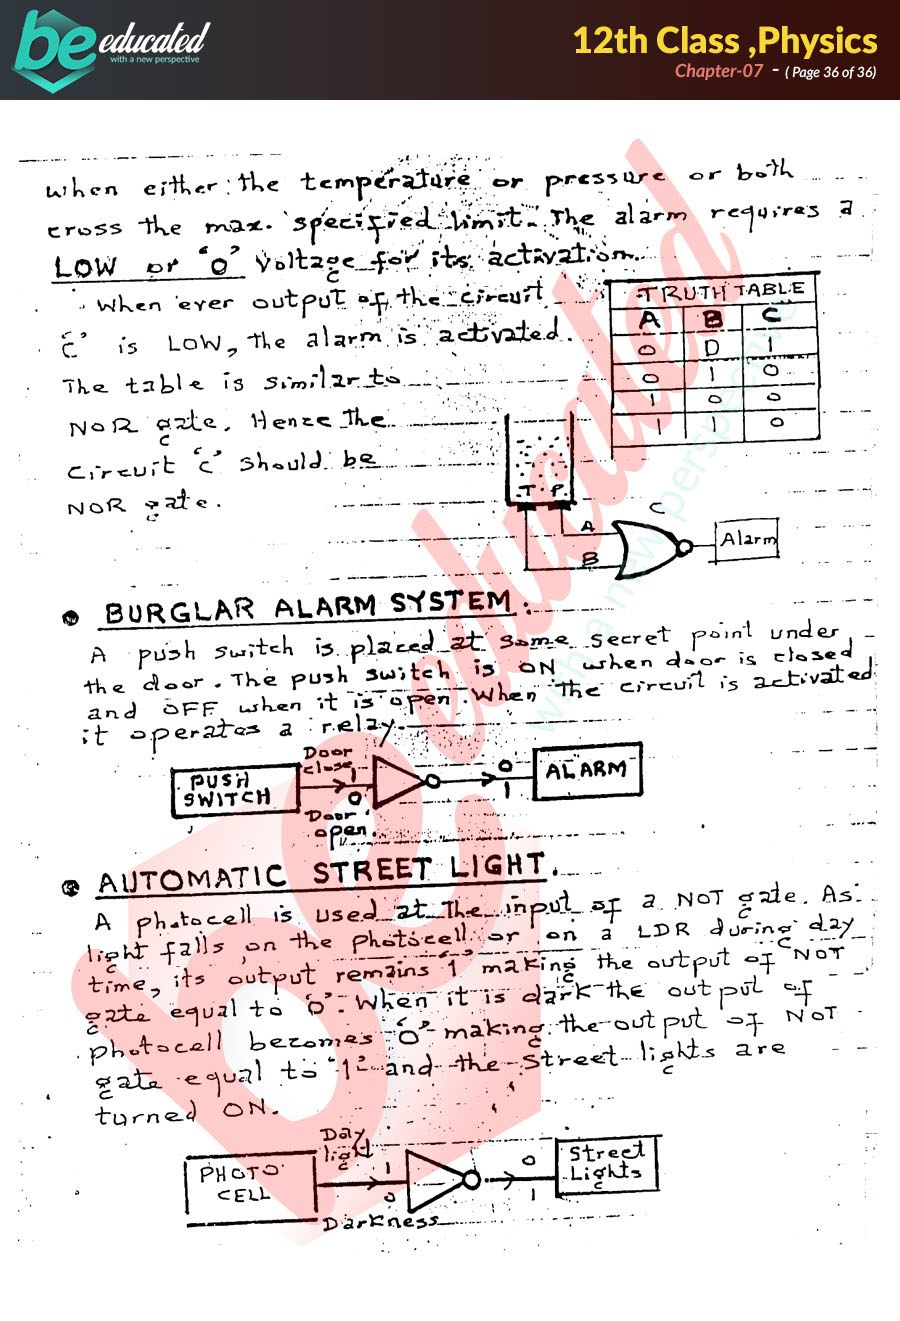 be educated
with a new perspective
12th Class ,Physics
Chapter-07 - ( Page 36 of 36)
when either the temperature or pressure or both
cross the max. specified limit. The alarm requires a
LOW or '0' voltage for its activation.
When ever output of the circuit
'C' is LOW, the alarm is activated.
The table is similar to
NOR gate. Hence the
circuit 'C' should be
NOR gate.
TRUTH TABLE
A B C
0 0 1
0 1 0
1 0 0
1 1 0
T P
A
B
C
Alarm
BURGLAR ALARM SYSTEM.
A push switch is placed at some secret point under
the door. The push switch is ON when door is closed
and OFF when it is open. When the circuit is activated
it operates a relay.
PUSH
SWITCH
Door
close
1
0
Door
open.
0
1
ALARM
AUTOMATIC STREET LIGHT.
A photocell is used at the input of a NOT gate. As
light falls on the photocell or on a LDR during day
time, its output remains '1' making the output of NOT
gate equal to '0'. When it is dark the output of
photocell becomes '0' making the output of NOT
gate equal to '1' and the street lights are
turned ON.
PHOTO
CELL
Day
light
1
0
Darkness
0
1
Street
Lights
be educated
with a new perspective